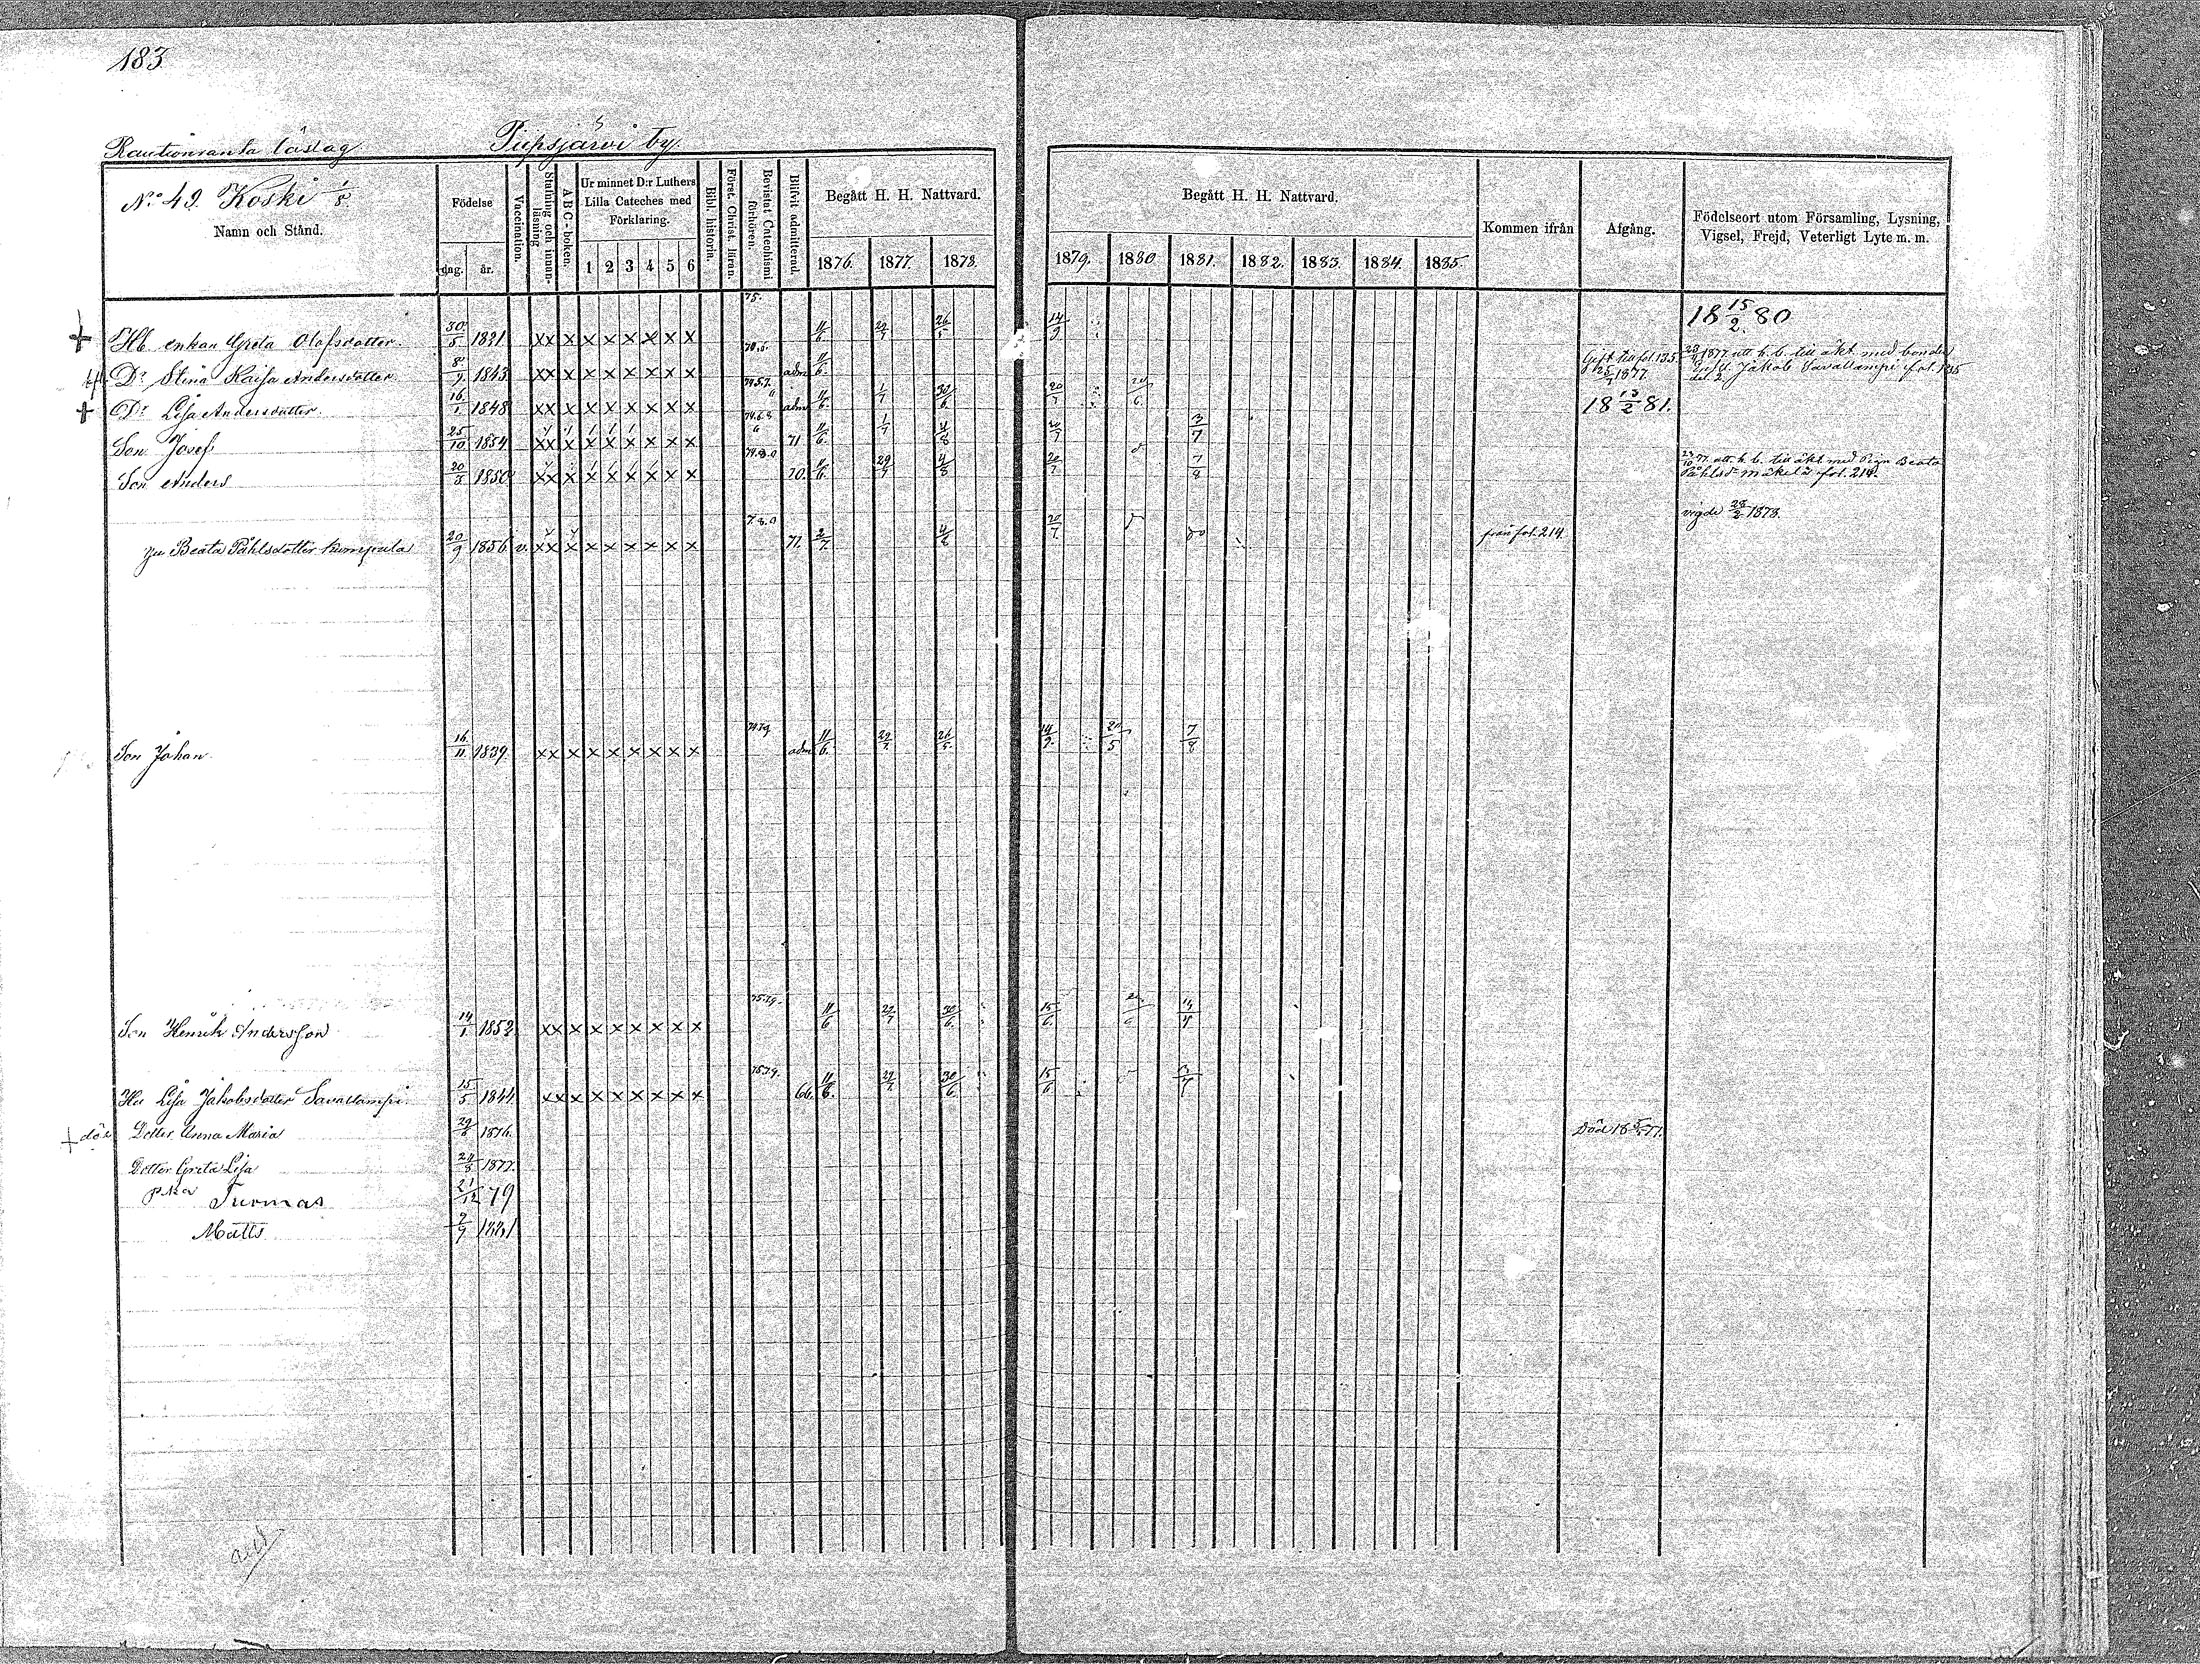 183
Rautioranta läslag Piipsjärvi by.
N:o 49. Koski 1/8
Namn och Stånd.
Födelse
dag. år.
Vaccination.
Stafning och innan-läsning
ABC-boken.
Ur minnet D:r Luthers Lilla Cateches med Förklaring.
1 2 3 4 5 6
Bibl. historia.
Först. Christ. läran.
Bevistat Catechismi förhören.
Blifvit admitterad.
Begått H. H. Nattvard.
1876. 1877. 1878.
Begått H. H. Nattvard.
1879. 1880 1881. 1882. 1883. 1884. 1885
Kommen ifrån
Afgång.
Födelseort utom Församling, Lysning, Vigsel, Frejd, Veterligt Lyte m. m.
75.
18 15/2 80
+ Hb. enkan Greta Olofsdotter. 30/5 1821 xx x x x x x x x 11/6 29/7 26/5 14/9
D:r Stina Kaisa Andersdotter 8/9 1843 xx x x x x x x x adm 11/6. Gift till fol. 135. 25/7 1877 1877 att h. b. till äkt. med bonden Jakob Savallampi fol. 135
+ D:r Lisa Andersdotter. 16/1 1848 xx x x x x x x x adm 11/6. 1/7 30/6 20/7 18 13/2 81.
Son Josef 25/10 1854 xx x x x x x x x 71 11/6. 1/7 4/8 20/7 3/7
Son Anders 20/8 1850 xx x x x x x x x 70. 11/6. 29/7 4/8 20/7 7/8 att h. b. till äkt med Pign Beata Påhlsdr Mäkelä fol. 214.
vigde 28/2 1878.
Beata Påhlsdotter Kumpula 20/9 1856 v. xx x x x x x x x 71. 2/7. 4/8 20/7 från fol. 214
Son Johan 16/11 1839. xx x x x x x x x adm 11/6. 29/7 26/5. 14/9. 20/5 7/8
Son Henrik Andersson 14/1 1852 xx x x x x x x x 11/6 29/7 30/6. 15/6.
75.79.
Hu Lisa Jakobsdotter Savallampi. 15/5 1844 xx x x x x x x x 66. 11/6. 29/7 30/6. 15/6
+ död Dotter Anna Maria 29/6 1876. Död 18 77.
Dotter Greta Lisa 24/8 1877.
Tuomas 21/12 79
Matts 2/9 1881